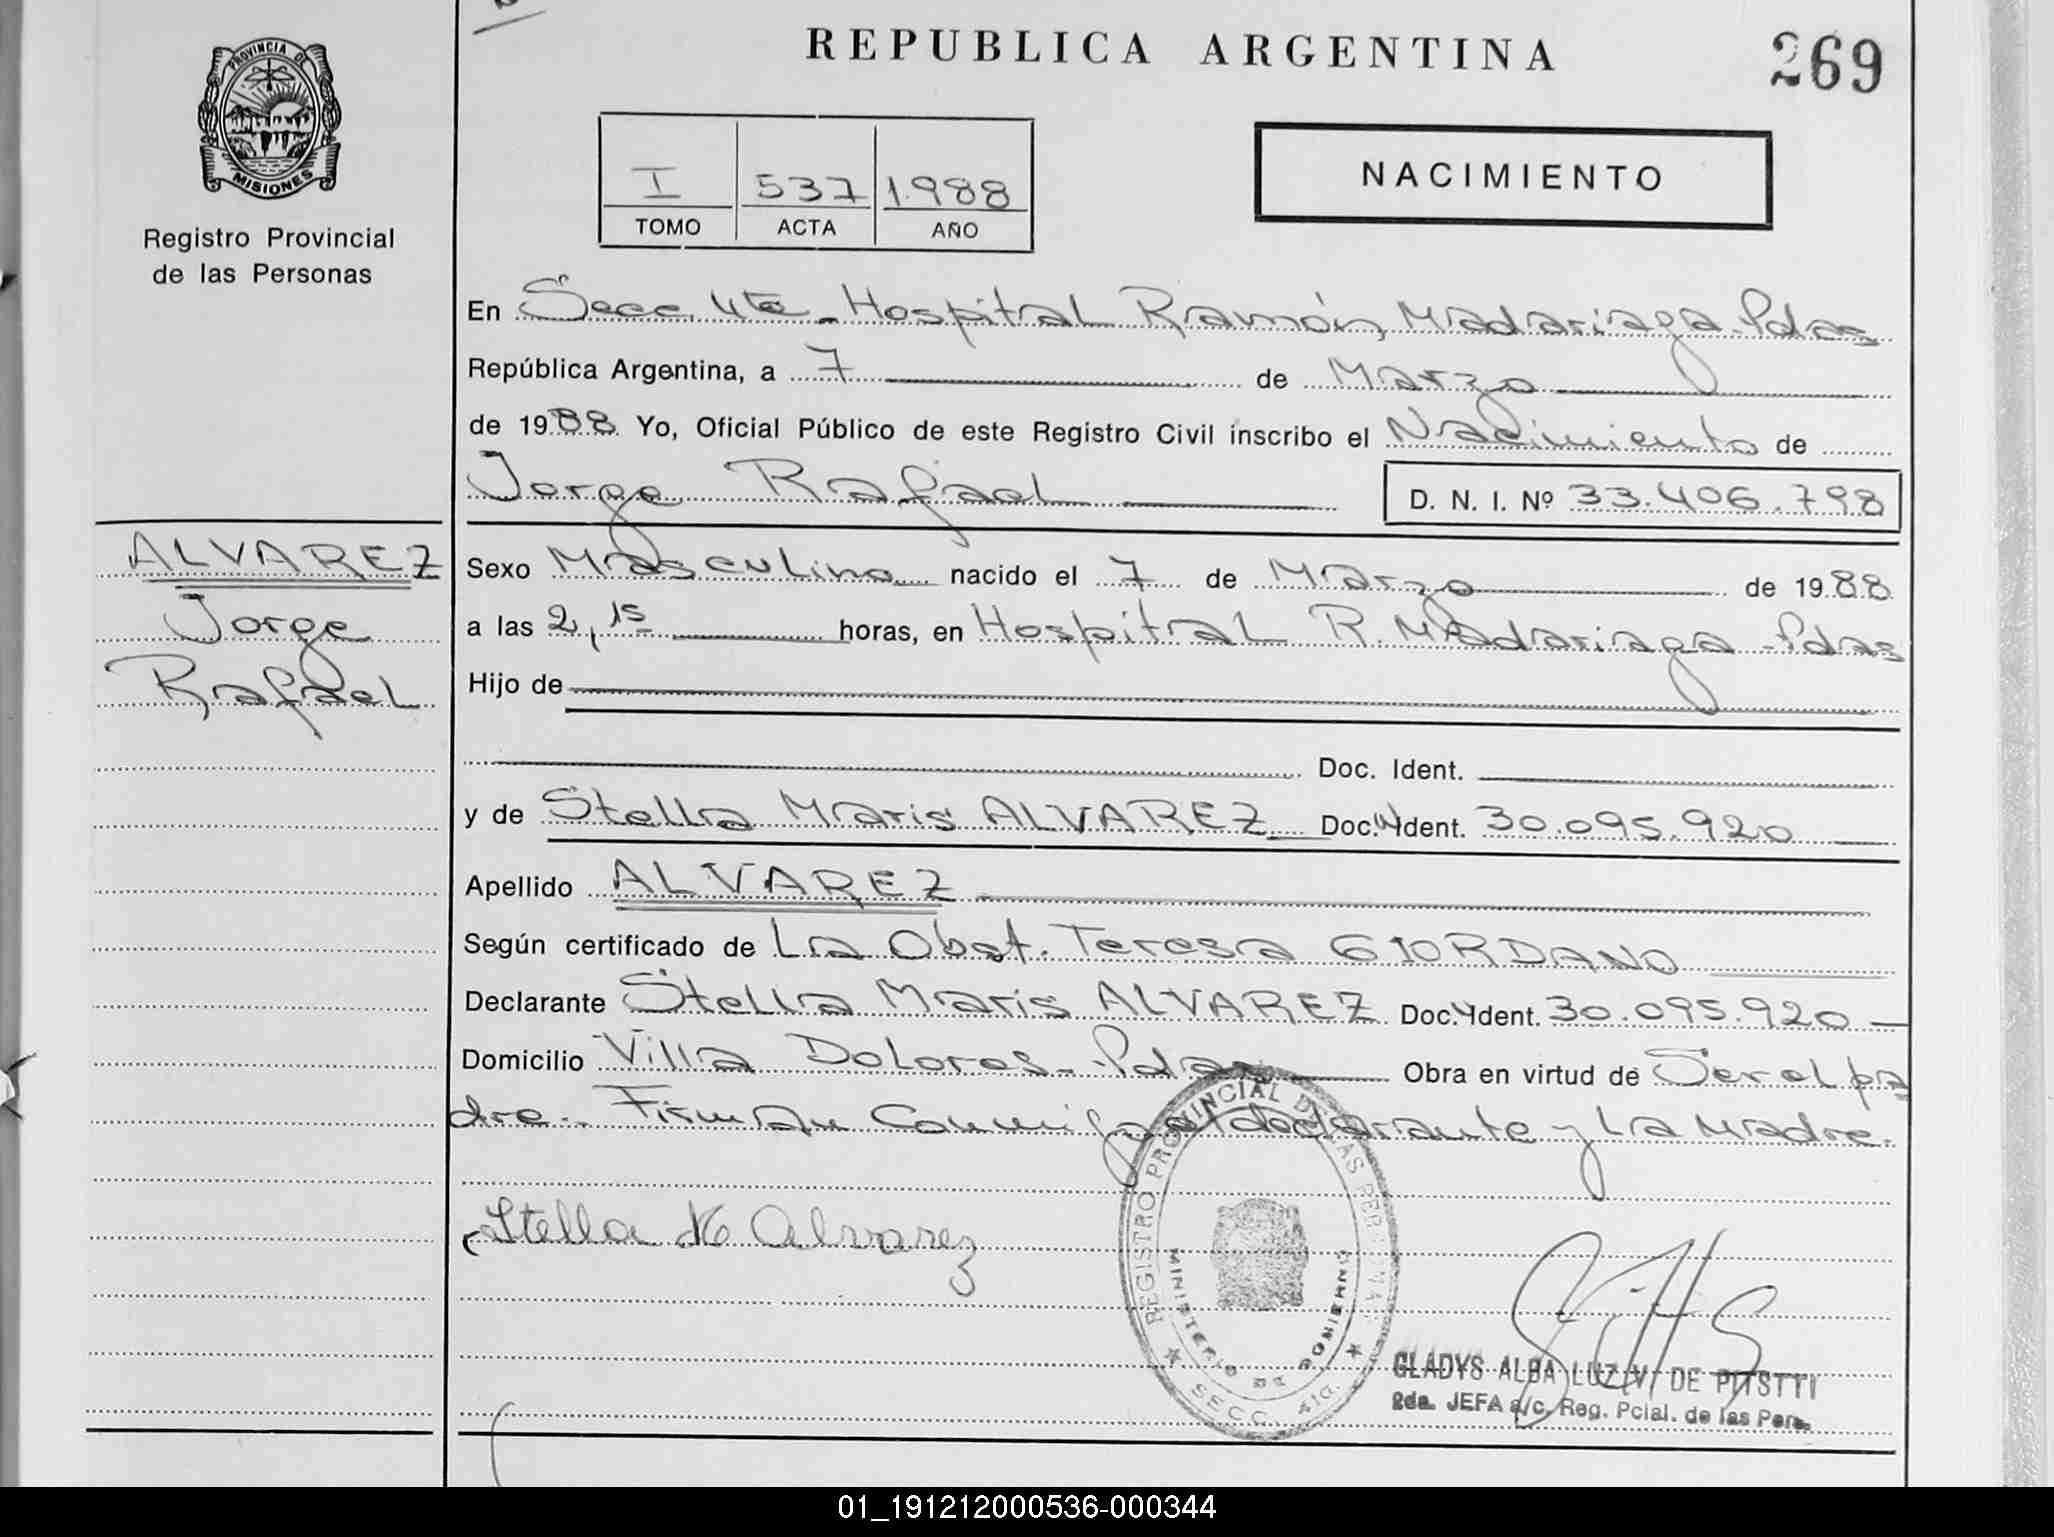 REPUBLICA ARGENTINA
269
PROVINCIA DE
MISIONES
Registro Provincial
de las Personas
I 537 1.988
TOMO ACTA AÑO
NACIMIENTO
En Secc. 4ta - Hospital Ramón Madariaga - Pdas
República Argentina, a 7 de Marzo
de 1988 Yo, Oficial Público de este Registro Civil inscribo el Nacimiento de
Jorge Rafael
D. N. I. Nº 33.406.798
ALVAREZ
Jorge
Rafael
Sexo Masculino nacido el 7 de Marzo de 1988
a las 2,15 horas, en Hospital R. Madariaga - Pdas
Hijo de
Doc. Ident.
y de Stella Maris ALVAREZ Doc. Ident. 30.095.920
Apellido ALVAREZ
Según certificado de La Obst. Teresa GIORDANO
Declarante Stella Maris ALVAREZ Doc. Ident. 30.095.920
Domicilio Villa Dolores - Pdas Obra en virtud de Ser el pa
dre. Firman Conmigo el declarante y La Madre.
Stella M Alvarez
REGISTRO PROVINCIAL DE LAS PERSONAS
MINISTERIO DE GOBIERNO
SECC. 4ta.
GLADYS ALBA LUZ V. DE PITSTTI
2da. JEFA a/c. Reg. Pcial. de las Pers.
01_191212000536-000344